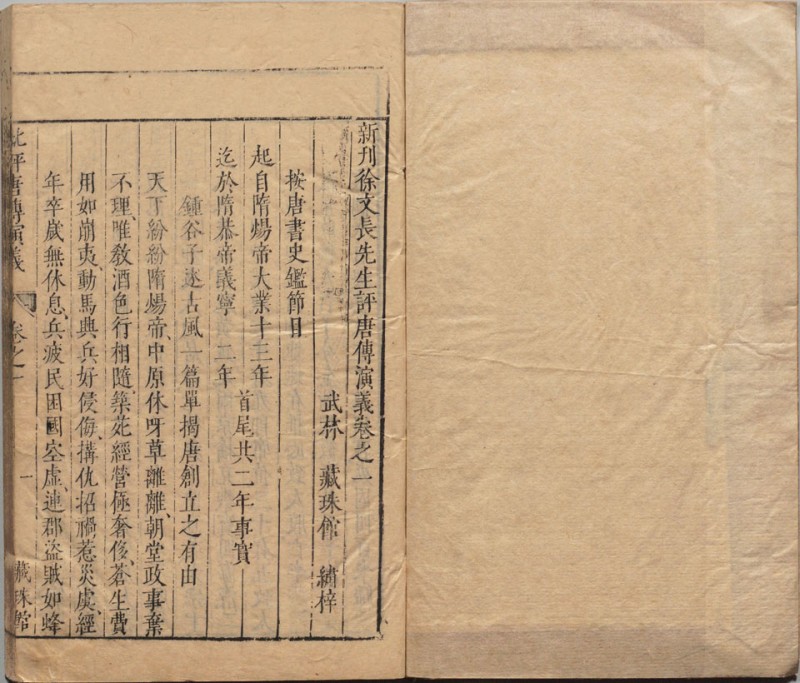 新刊徐文長先生評唐傳演義卷之一
武林 藏珠館 繡梓
按唐書史鑑節目
起自隋煬帝大業十三年
首尾共二年事實
迄於隋恭帝義寧二年
鍾谷子述古風一篇單揭唐創立之有由
天下紛紛隋煬帝、中原休呀草離離、朝堂政事棄
不理、唯教酒色行相隨、築苑經營極奢侈、蒼生費
用如崩夷、動馬典兵好侵侮、搆仇招禍惹災虞、經
年卒歲無休息、兵疲民困國空虛、連郡盜賊如蜂
批評唐傳演義 卷之一 一 藏珠館